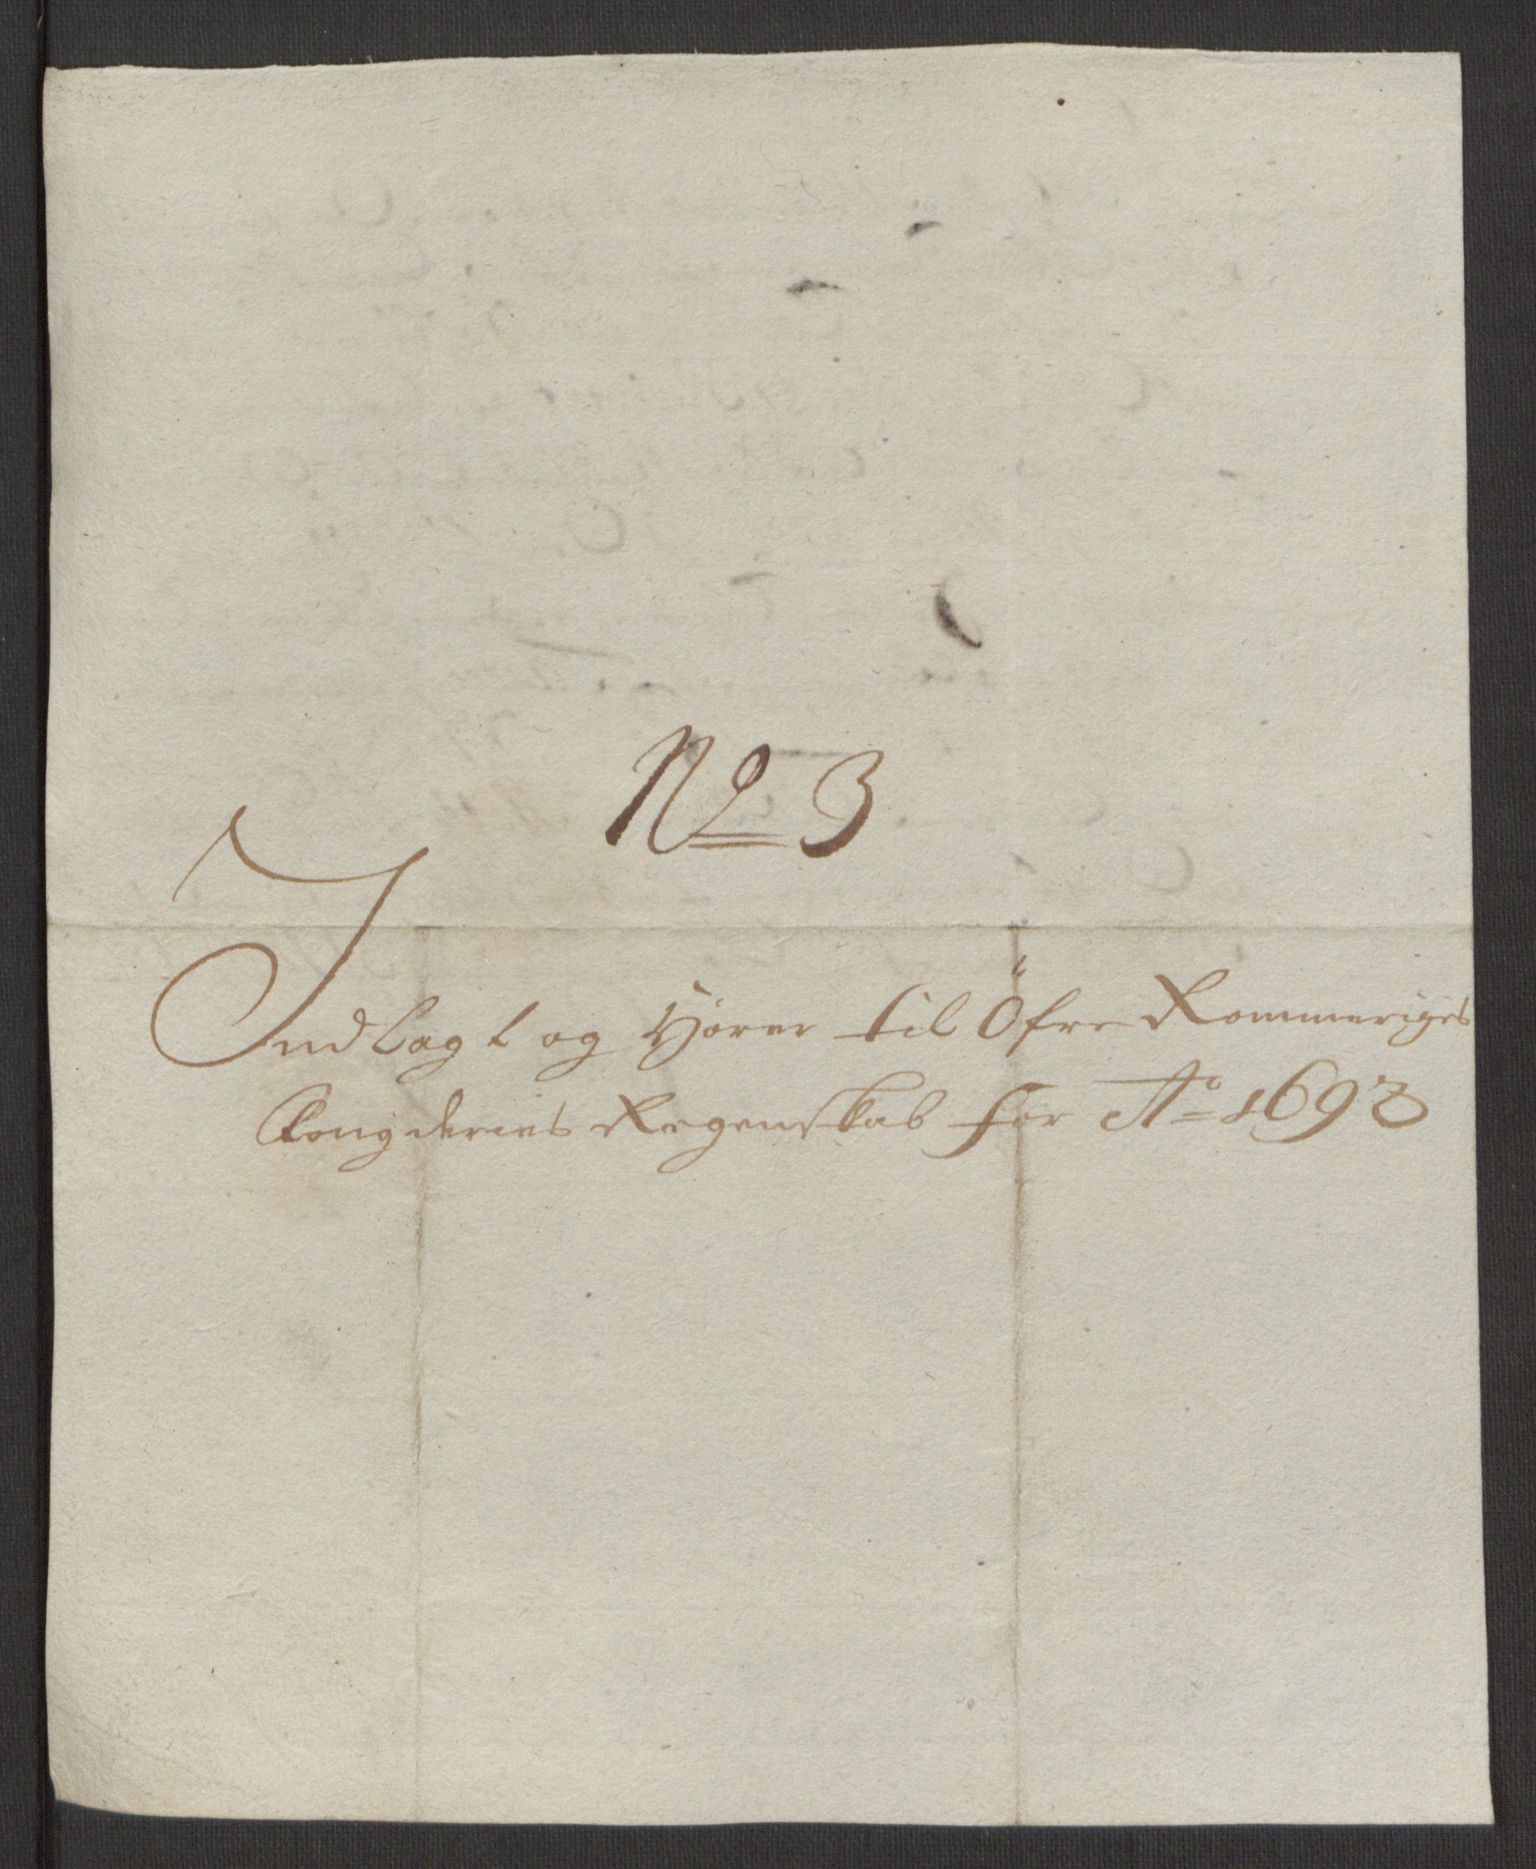 No 3
Indlagt og Hörer til Öfre Rommeriges
Fougderies Regenskab for Ao 1692